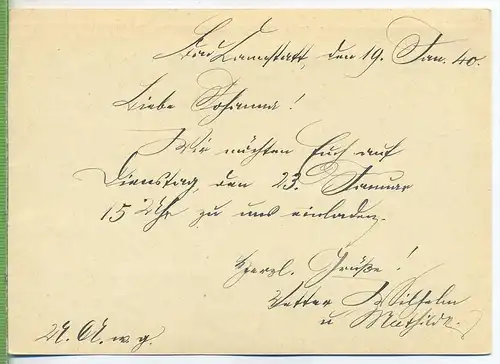 Bad Cannstatt, den 19. Jan. 40.
Liebe Johanna!
Wir möchten Euch auf
Dienstag, den 23. Januar
15 Uhr zu uns einladen.
Herzl. Grüße!
Vetter Wilhelm
u Mathilde.
U. A. w. g.